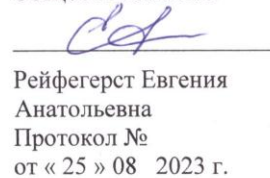 Рейфегерст Евгения
Анатольевна
Протокол №
от « 25 » 08 2023 г.